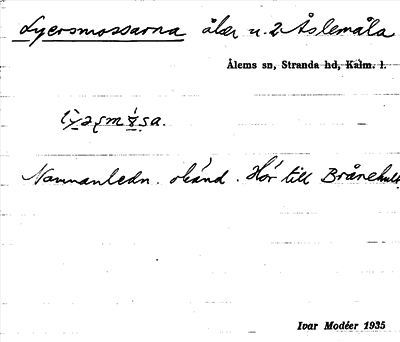 Lyersmossarna åker u. 2 Åslemåla
Ålems sn, Stranda hd, Kalm. l.
Namnanledn. okänd. Hör till Brånehult
Ivar Modéer 1935